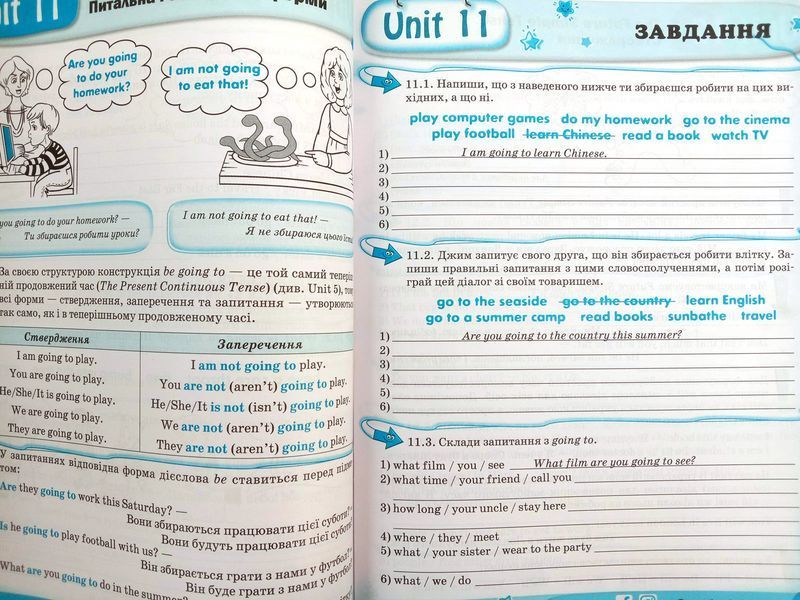 Unit 11
Are you going
to do your
homework?
I am not going
to eat that!
you going to do your homework? —
Ти збираєшся робити уроки?
I am not going to eat that! —
Я не збираюся цього
За своєю структурою конструкція be going to — це той самий
ній продовжений час (The Present Continuous Tense) (див. Unit 5),
всі форми — ствердження, заперечення та запитання —
так само, як і в теперішньому продовженому часі.
Ствердження
Заперечення
I am going to play.
I am not going to play.
You are going to play.
You are not (aren't) going to play.
He/She/It is going to play.
He/She/It is not (isn't) going to play.
We are going to play.
We are not (aren't) going to play.
They are going to play.
They are not (aren't) going to play.
У запитаннях відповідна форма дієслова be ставиться перед
том:
Are they going to work this Saturday? —
Вони збираються працювати цієї суботи?
Вони будуть працювати цієї суботи?
Is he going to play football with us? —
Він збирається грати з нами у футбол?
Він буде грати з нами у футбол?
What are you going to do in the summer?
Unit 11
ЗАВДАННЯ
11.1. Напиши, що з наведеного нижче ти збираєшся робити на цих ви-
хідних, а що ні.
play computer games do my homework go to the cinema
play football learn Chinese read a book watch TV
1) I am going to learn Chinese.
2)
3)
4)
5)
6)
11.2. Джим запитує свого друга, що він збирається робити влітку. За-
пиши правильні запитання з цими словосполученнями, а потім розі-
грай цей діалог зі своїм товаришем.
go to the seaside go to the country learn English
go to a summer camp read books sunbathe travel
1) Are you going to the country this summer?
2)
3)
4)
5)
6)
11.3. Склади запитання з going to.
1) what film / you / see What film are you going to see?
2) what time / your friend / call you
3) how long / your uncle / stay here
4) where / they / meet
5) what / your sister / wear to the party
6) what / we / do